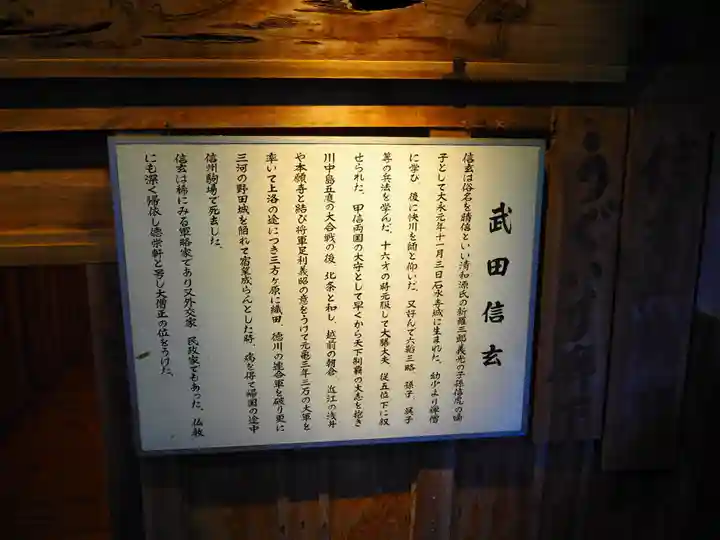 武田信玄
信玄は俗名を晴信といい清和源氏の新羅三郎義光の子孫信虎の嫡
子として大永元年十一月三日石水寺城に生まれた。幼少より禅僧
に学び 後に快川を師と仰いだ。又好んで六韜三略 孫子 呉子
等の兵法を学んだ。十六才の時元服して大膳大夫 従五位下に叙
せられた。甲信両国の大守として早くから天下制覇の大志を抱き
川中島五度の大合戦の後 北条と和し、越前の朝倉 近江の浅井
や本願寺と結び将軍足利義昭の意をうけて元亀三年三万の大軍を
率いて上洛の途につき三方ヶ原に織田、徳川の連合軍を破り更に
三河の野田城を陥れて宿業成らんとした時、病を得て帰国の途中
信州駒場で死去した。
信玄は稀にみる軍略家であり又外交家 民政家でもあった。仏教
にも深く帰依し徳栄軒と号し大僧正の位をうけた。